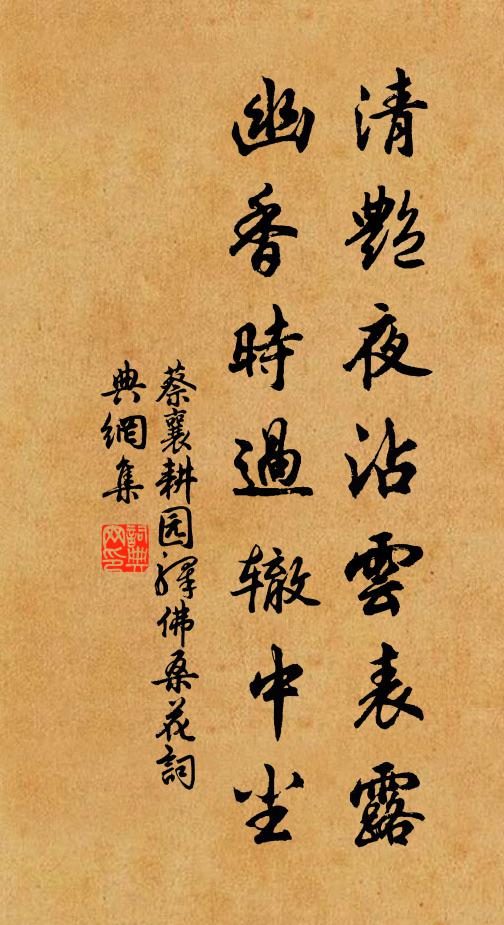 清艷夜沾雲表露
幽香時過辙中尘
蔡襄耕园驛佛桑花詞
典網集
詞典
网印